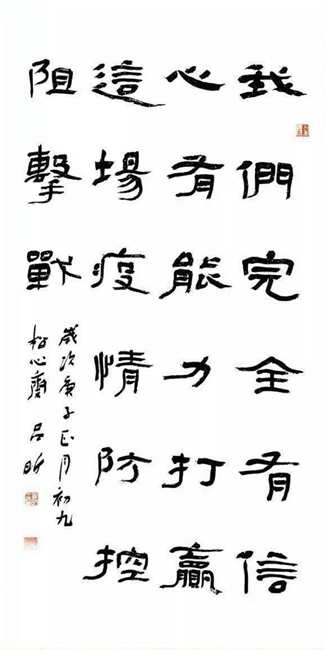 我們完全有信
心有能力打贏
這場疫情防控
阻擊戰
歲次庚子正月初九
松心齋呂昕